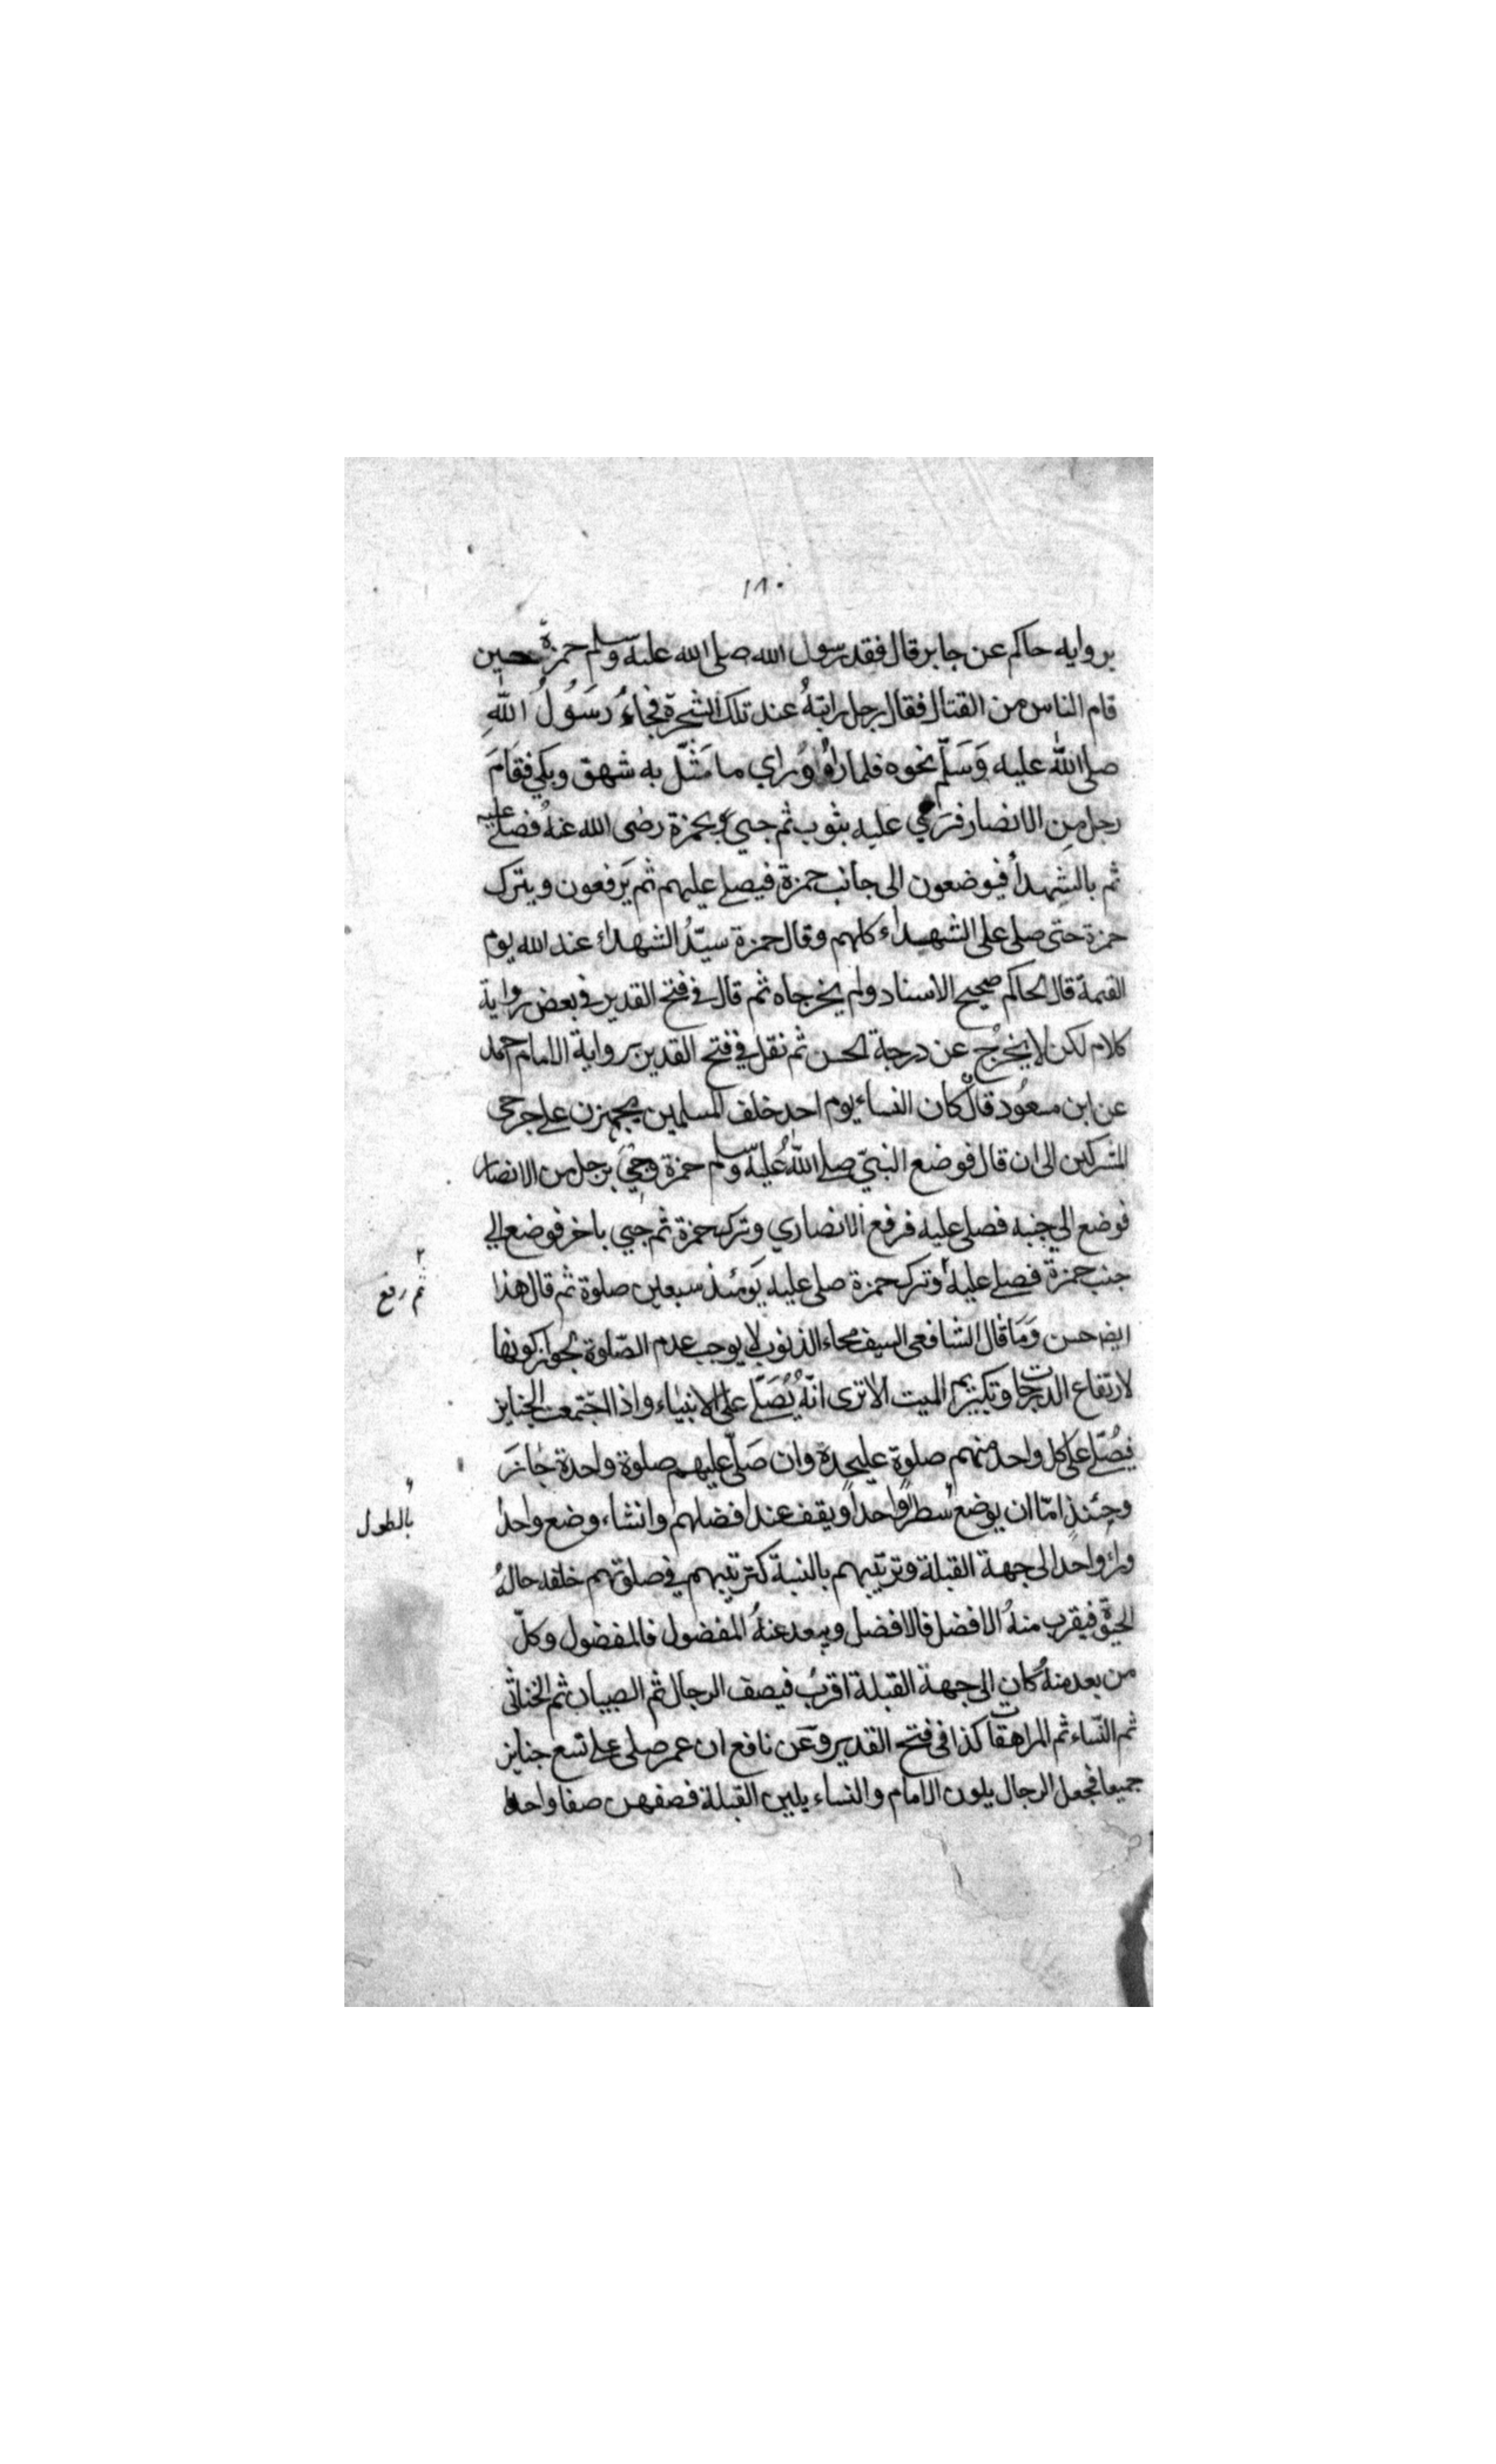 ١٨٠
بروايه حاكم عن جابر قال فقد رسول الله صلى الله عليه وسلم حمزة حين
قام الناس من القتال فقال رجل رايته عند تلك الشجرة فجاء رَسُولُ اللهِ
صلى الله عليه وَسَلّم نحوه فلما راه وراي ما مَثّل به شهق وبكي فقَامَ
رجل مِن الانصار فرمي عليه بثوب ثم جيئ بحمزة رضى الله عنهُ فصلى عليه
ثم بالشهدأ فيوضعون الى جانب حمزة فيصلے عليهم ثم يَرفعون ويترك
حمزة حتى صلى على الشهداء كلهم وقال حمزة سيّدُ الشهداء عند الله يوم
القيمة قال الحاكم صحيح الاسناد ولم يخرجاه ثم قال في فتح القدير في بعض رواية
كلام لكن لا يخرُج عن درجة الحسن ثم نقل في فتح القدير برواية الامام احمد
عن ابن مسعُود قال كان النساء يوم احد خلف المسلمين يجهزن على جرحى
المشركين الى ان قال فوضع النبيّ صلے اللهُ عليه وسلم حمزة وجئ برجل من الانصار
فوضع الي جنبه فصلى عليه فرفع الانصاري وترك حمزة ثم جيي باخر فوضع الي
جنب حمزة فصلے عليه وترك حمزة صلى عليه يَومئذ سبعين صلوة ثم قال هذا
ثم رفع
ايضا حسن وَمَا قال الشافعى السيف محاء الذنوب لا يوجب عدم الصّلوة لجواز كونها
لارتفاع الدرجات وتكريم الميت الا ترى انّهُ يُصَلّے على الانبياء واذا اجتمعت الجنايز
فيُصَلّے على كل واحد منهم صلوة عليحدة وان صَلّى عليهم صلوة واحدة جٰازَ
وحِئنذٍ امّا ان يوضع سطرًا واحدًا ويقف عند افضلهم وانشاء وضع واحدا
بالطول
وراء واحد الى جهة القبلة وترتيبهم بالنسبة كترتيبهم في صلوتهم خلفه حالهُ
الحيٰوة فيقرب منهُ الافضل فالافضل ويبعد عنهُ المفضول فالمفضول وكلّ
من بعد منهُ كان الى جهة القبلة اقربُ فيصف الرجال ثم الصبيان ثم الخناثى
ثم النّساء ثم المراهقات كذا فى فتح القدير وعن نافع ان عمر صلى على تسع جنايز
جميعا فجعل الرجال يلون الامام والنساء يلين القبلة فصفهن صفا واحدا